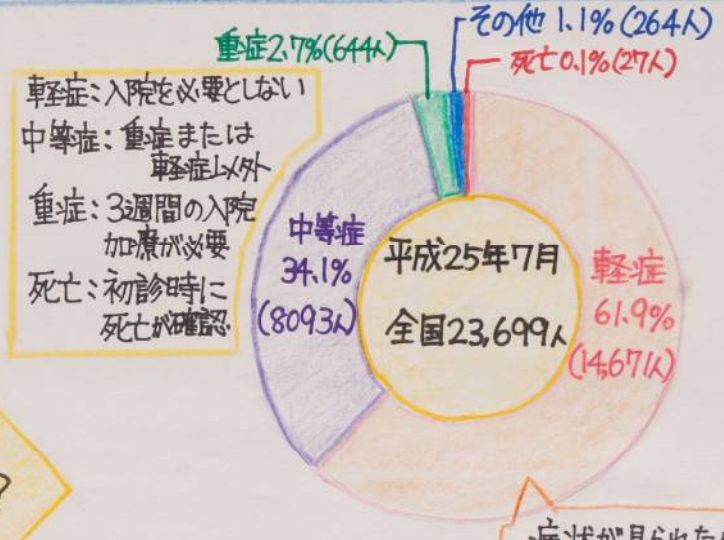 重症2.7%(644人)
その他 1.1%(264人)
死亡0.1%(27人)
軽症:入院を必要としない
中等症:重症または
軽症以外
重症:3週間の入院
加療が必要
死亡:初診時に
死亡が確認
中等症
34.1%
(8093人)
平成25年7月
全国23,699人
軽症
61.9%
(14,671人)
?
症状が見られた